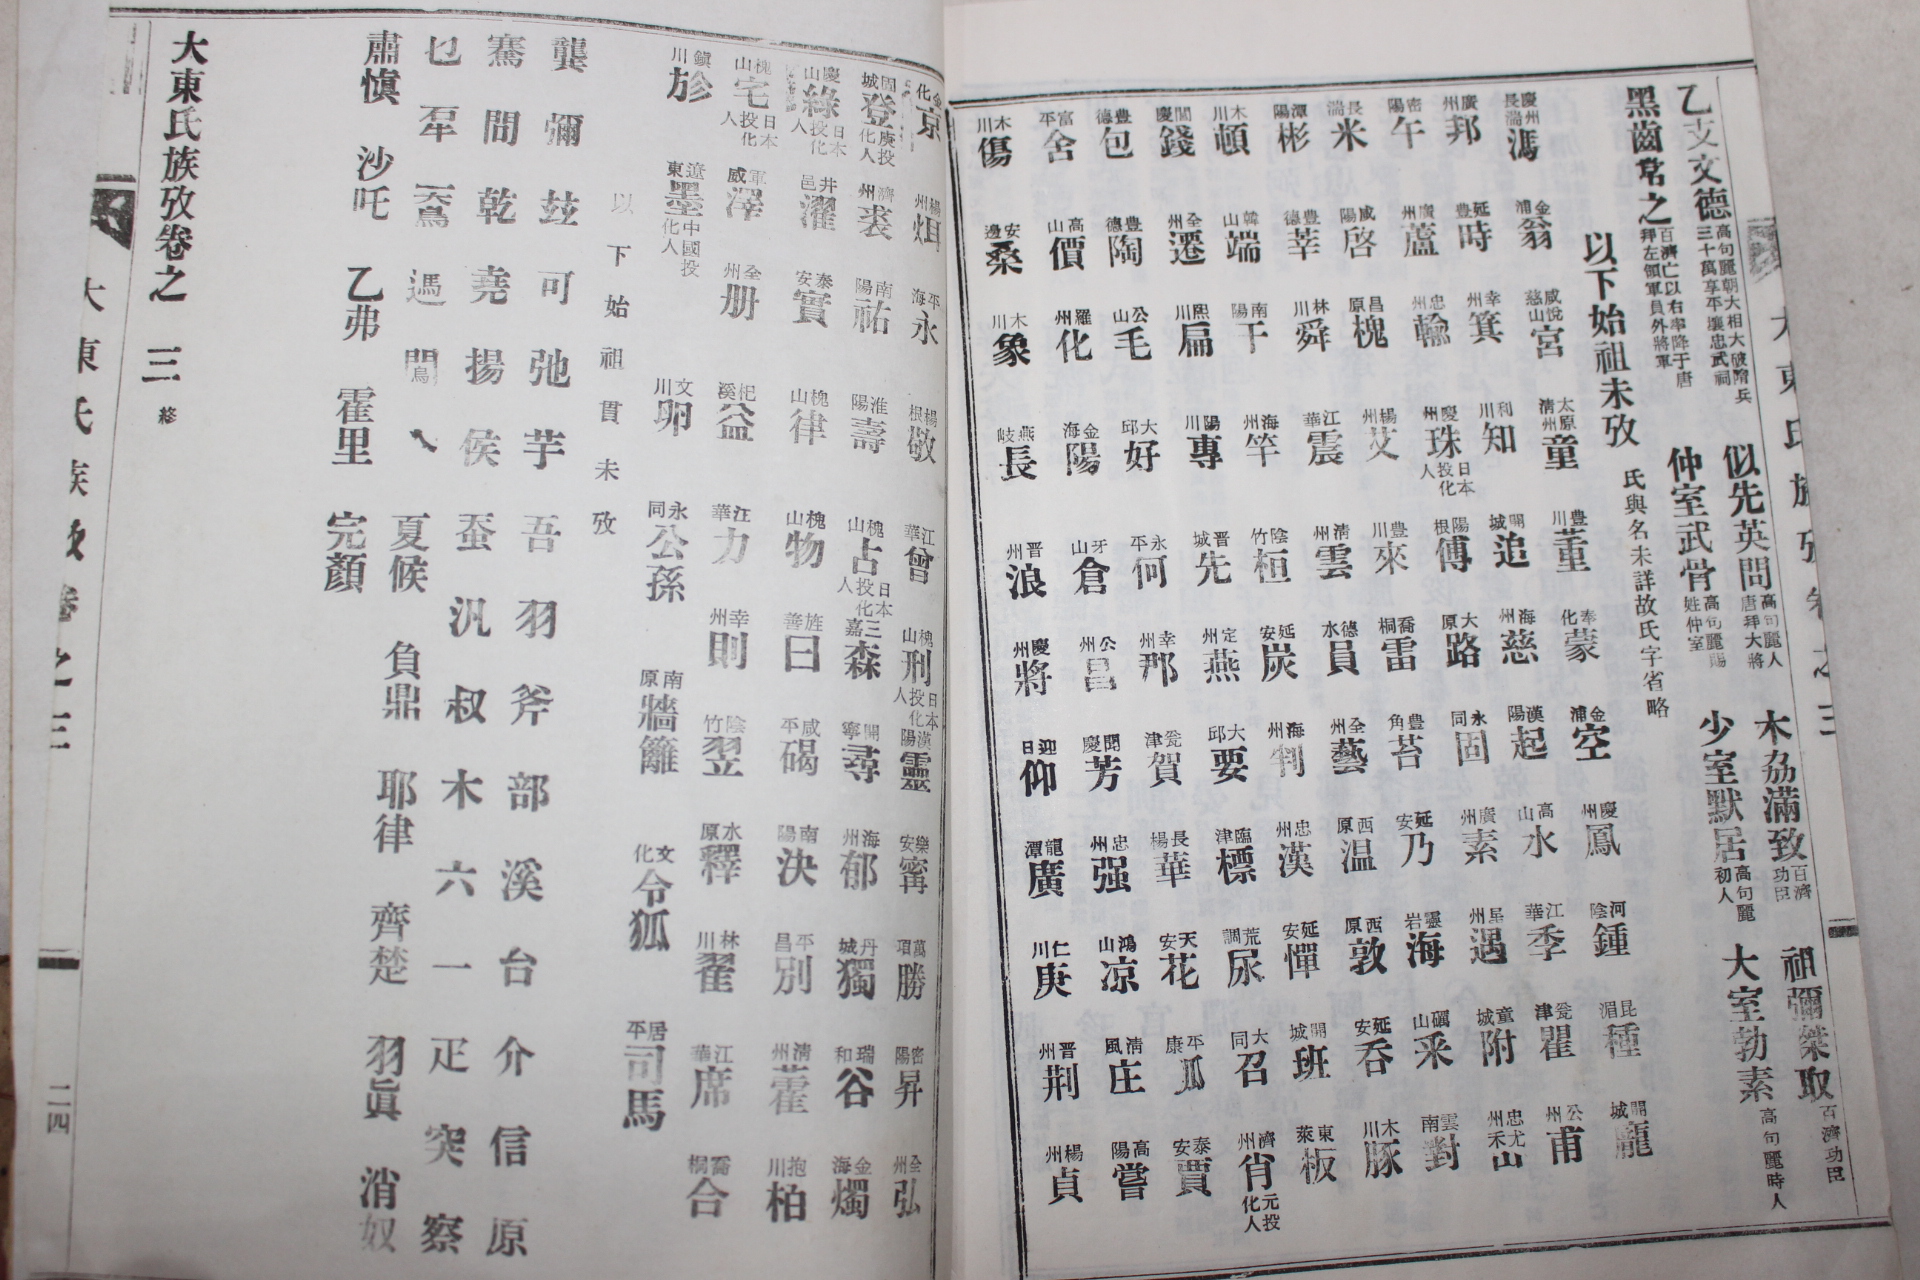 乙支文德 高句麗朝大相大破隋兵三十萬享平壤忠武祠 似先英問 高句麗人唐拜大將 木劦滿致 百濟功臣 祖彌傑取 百濟功臣
黑齒常之 百濟亡以右率降于唐拜左領軍員外將軍 仲室武骨 高句麗賜姓仲室 少室默居 高句麗初人 大室勃素 高句麗時人
以下始祖未攷 氏與名未詳故氏字省略
慶州長湍馮 金浦翁 咸悅慈山宮 太原清州童 豊川董 奉化蒙 金浦空 慶州鳳 河陰鍾 昆湄種 開城龐
廣州邦 延豊時 幸州箕 利川知 開城追 海州慈 漢陽起 高山水 江華季 瓮津瞿 公州甫
密陽午 廣州蘆 忠州輸 慶州珠 日本投化人 陽根傅 大原路 永同固 廣州素 星州遇 童城附 忠州禾尤山
長湍米 咸陽啓 昌原槐 楊州艾 豊川來 喬桐雷 豊角苔 延安乃 靈岩海 礪山釆 雲南對
潭陽彬 豊德莘 林川舜 江華震 清州雲 德水員 全州藝 西原温 西原敦 延安呑 木川豚
木川頓 韓山端 南陽干 海州竿 陰竹桓 延安炭 海州判 忠州漢 延安憚 開城班 東萊板
聞慶錢 全州遷 熙川扁 陽川專 晋城先 定州燕 大邱要 臨津標 荒調尿 大同召 濟州肖 元投化人
豊德包 豊德陶 公山毛 大邱好 永平何 幸州邢 瓮津賀 長楊華 天安花 平康瓜 泰安賈
富平舍 高山價 羅州化 金海陽 牙山倉 公州昌 聞慶芳 忠州强 鴻山凉 清風庄 高陽嘗
木川傷 安邊桑 木川象 燕岐長 晋州浪 慶州將 迎日仰 龍潭廣 仁川庚 晋州荆 楊州貞
大東氏族攷卷之三
金化京 楊州炬 平海永 楊根敬 江華曾 槐山刑 日本投化人 漢陽靈 樂安甯 萬項勝 密陽昇 全州弘
固城登 庚投化人 濟州裘 南陽祐 淮陽壽 槐山占 日本投化人 三嘉森 開寧尋 海州郁 丹城獨 瑞和谷 金海燭
慶山綠 日本投化人 井邑濯 泰安實 槐山律 槐山物 旌善曰 咸平碣 南陽決 平昌別 清州藿 抱川柏
槐山宅 日本投化人 軍威澤 全州册 杞溪益 江華力 幸州則 陰竹翌 水原釋 林川翟 江華席 喬桐合
鎭川㫈 遼東墨 中國投化人 文川卵 永同公孫 南原牆籬 文化令狐 居平司馬
以下始祖貫未攷
龔彌玆可弛芋吾羽斧部溪台介信原
騫問乾堯揚侯蚕汎叔木六一疋突察
乜𨈭 馮 夏候 負鼎 耶律 齊楚 羽眞 消奴
肅愼 沙吒 乙弗 霍里 完顏
大東氏族攷卷之三 終
大東氏族攷卷之三
二四